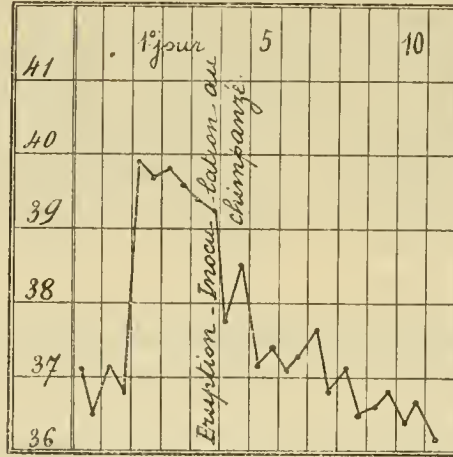 1er jour 5 10
41
40
39
38
37
36
Eruption - Inocu-lation au
chimpanzé.